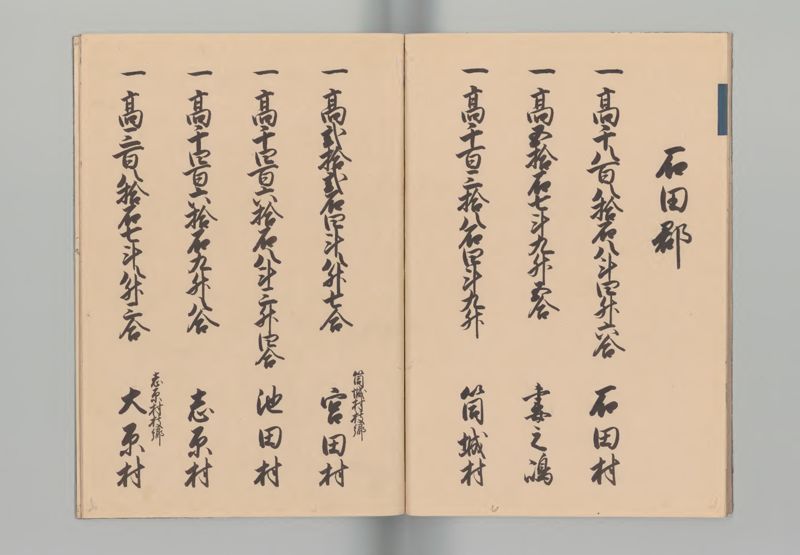 石田郡
一高千八百八拾石八斗四升六合 石田村
一高五拾石七斗九升五合 妻之嶋
一高千百三拾八石四斗九升 筒城村
筒城村枝郷
一高弐拾弐石四斗八升七合 宮田村
一高千四百六拾石八斗三升四合 池田村
一高千四百六拾石九升八合 志原村
志原村枝郷
一高三百八拾石七斗八升三合 大原村